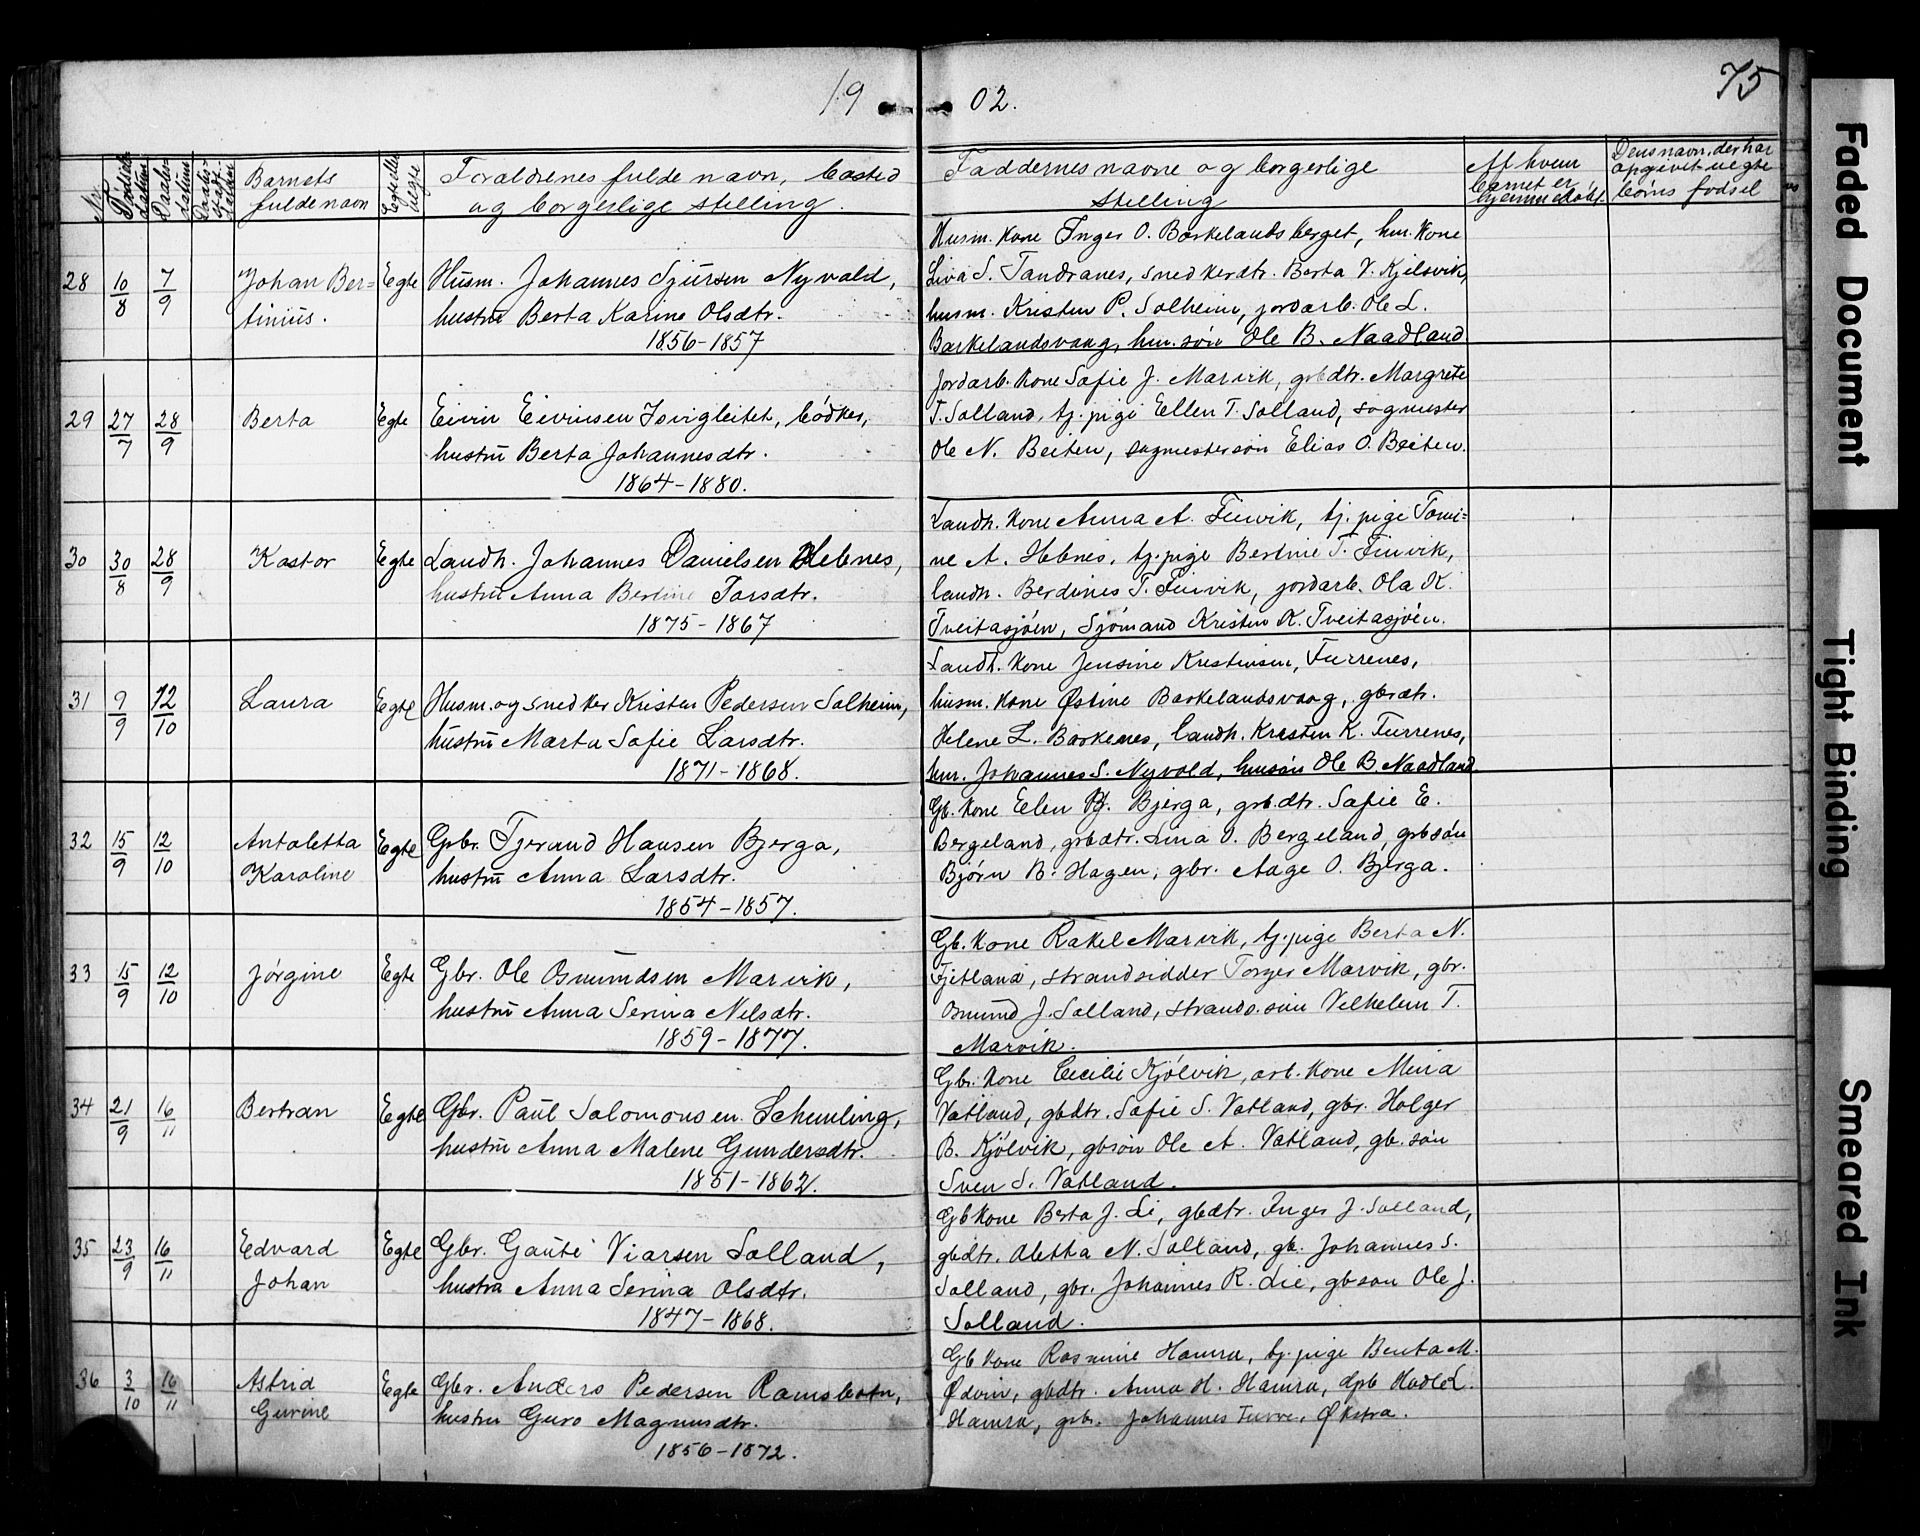 19 02.
75
No
Fødsels-datum
Daabs-datum
Barnets
fulde navn
Egte eller uegte
Foraldrenes fulde navn, bosted
og borgerlige stilling.
Faddernes navne og borgerlige
stilling
Af hvem
barnet er
hjemmedøbt.
Dens navn, der har
opgivet uegte
børns fødsel
28 10/8 7/9 Johan Ber= Egte Husm. Johannes Sjursen Nyvold,
tinius. hustru Berta Karine Olsdtr.
1856-1857
Husm. kone Inger O. Barkelandsberget, hm. kone
Liva S. Tandranes, snedkerdtr. Berta V. Kjilsvik,
husm. Kristen P. Solheim, jordarb. Ole L.
Barkelandsvaag, hm. søn Ole B. Naadland
29 27/7 28/9 Berta Egte Eivin Eivinsen Isvigleitet, bødker,
hustru Berta Johannesdtr.
1864-1880.
Jordarb. kone Sofie J. Marvik, grbdtr. Margrete
T. Solland, tj. pige Ellen T. Solland, sagmester
Ole N. Beiten, sagmestersøn Elias O. Beiten.
30 30/8 28/9 Kastor Egte Landh. Johannes Danielsen Hebnes,
hustru Anna Bertine Torsdtr.
1875-1867
Landh. kone Anna A. Finvik, tj. pige Tomi=
ne A. Hebnes, tj. pige Bertine T. Finvik,
landh. Berdines T. Finvik, jordarb. Ola K.
Tveitasjøen, Sjømand Kristen K. Tveitasjøen.
31 9/9 12/10 Laura Egte Husm. og snedker Kristen Pedersen Solheim,
hustru Marta Sofie Larsdtr.
1871-1868.
Landh. kone Jensine Kristensen, Furrenes,
husm. kone Østine Barkelandsvaag, gbrdtr.
Helene L. Barkenes, landh. Kresten K. Furrenes,
hm. Johannes S. Nyvold, hmsøn Ole B. Naadland.
32 15/9 12/10 Antoletta Egte Gbr. Tjerand Hansen Bjerga,
Karoline hustru Anna Larsdtr.
1854-1857.
Gb. kone Elen B. Bjerga, grb.dtr. Sofie E.
Bergeland, grbdtr. Lina O. Bergeland, grbsøn
Bjørn B. Hagen, gbr. Aage O. Bjerga.
33 15/9 12/10 Jørgine Egte Gbr. Ole Osmundsen Marvik,
hustru Anna Serina Nilsdtr.
1859-1877.
Gb. kone Rakel Marvik, tj. pige Berta N.
Fjetland, strandsidder Torger Marvik, gbr.
Osmund J. Solland, strands. søn Velhelem T.
Marvik.
34 21/9 16/11 Bertran Egte Gbr. Paul Salomonsen Schmling,
hustru Anna Malene Gundersdtr.
1851-1862.
Gbr. kone Cecilie Kjølvik, arb. kone Mina
Vatland, gbdtr. Sofie S. Vatland, gbr. Holger
B. Kjølvik, gbsøn Ole A. Vatland, gb. søn
Sven S. Vatland.
35 23/9 16/11 Edvard Egte Gbr. Gaute Viarsen Solland,
Johan hustru Anna Serina Olsdtr.
1847-1868.
Gb kone Berta J. Li, gbdtr. Inger J. Solland,
gbdtr. Oletta N. Solland, gb. Johannes S.
Solland, gbr. Johannes R. Lie, gbsøn Ole J.
Solland.
36 3/10 16/11 Astrid Egte Gbr. Anders Pedersen Ramsbotn,
Gurine hustru Guro Magnusdtr.
1856-1872.
Gb kone Rasmine Hamra, tj. pige Benta M.
Ødvin, gbdtr. Anna H. Hamra, dpb Hadle L.
Hamra, grb. Johannes Økstra.
Faded Document
Tight Binding
Smeared Ink